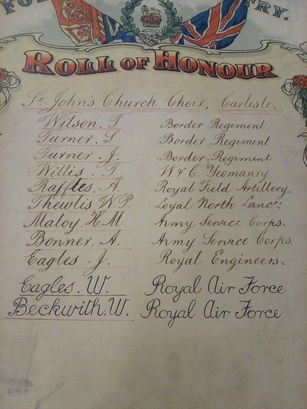 FOR
TRY.
ROLL OF HONOUR
St. John's Church Choir, Carlisle.
Wilson. T Border Regiment.
Turner. S Border Regiment
Turner. J. Border Regiment.
Willis. T W & C. Yeomanry
Raffles. A. Royal Field Artillery.
Thewlis W.P. Loyal North Lancs:
Maloy H.M. Army Service Corps.
Bonner. A. Army Service Corps.
Eagles. J. Royal Engineers.
Eagles. W. Royal Air Force
Beckwith. W. Royal Air Force